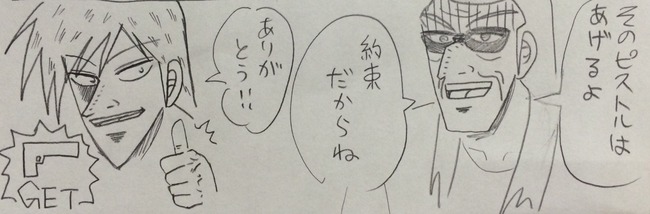 そのピストルは
あげるよ
約束
だからね
ありが
とう!!
GET